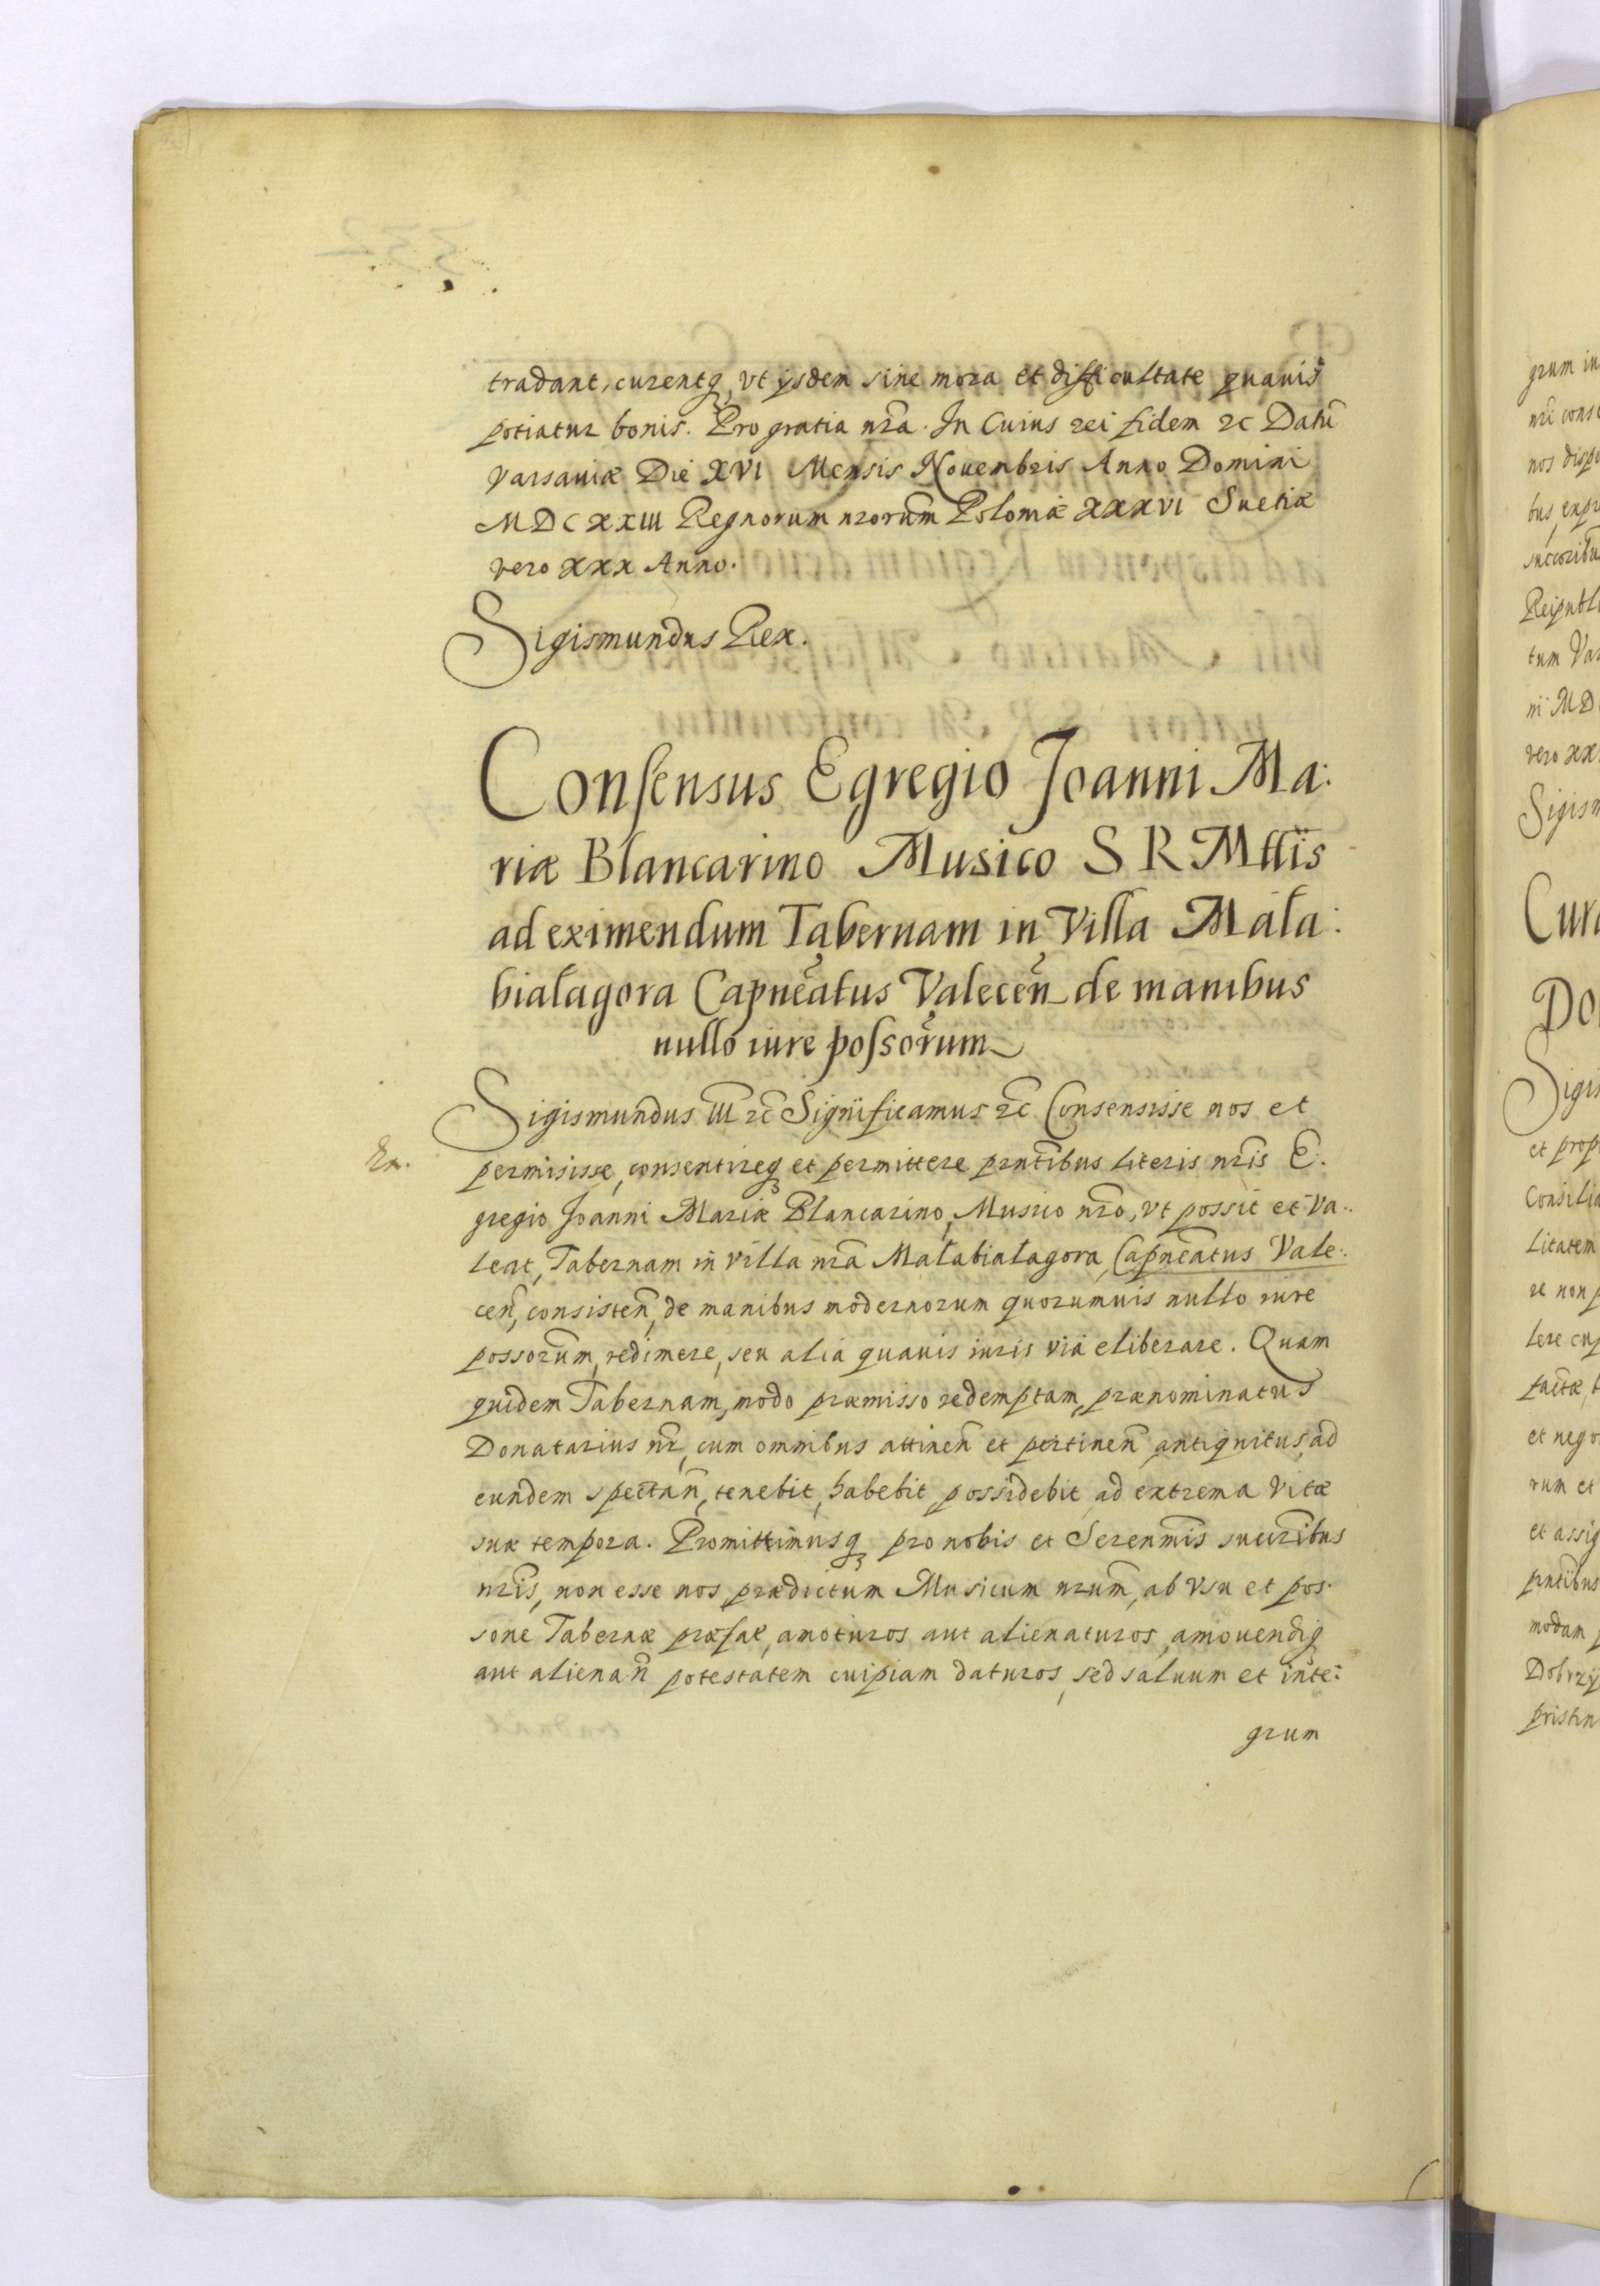 tradant, curentq, vt ysdem sine mora et difficultate quauis
potiatur bonis. Pro gratia nra. In Cuius rei fidem &c Datu
Varsauiæ Die XVI Mensis Nouembris Anno Domini
MDCXXIII Regnorum nrorum Poloniæ XXXVI Suetiæ
vero XXX Anno.
Sigismundus Rex.
Consensus Egregio Joanni Ma:
riæ Blancarino Musico S R Mttis
ad eximendum Tabernam in Villa Mała:
białagora Capneatus Valecen de manibus
nullo iure possorum
Sigismundus III &c Significamus &c Consensisse nos et
permisisse, consentireq et permittere prntibus literis nris E:
gregio Joanni Mariæ Blancarino, Musico nro, vt possit et va:
leat, Tabernam in villa nra Małabiałagora, Capneatus Vale:
cen, consisten, de manibus modernorum quorumuis nullo iure
possorum, redimere, seu alia quauis iuris via eliberare. Quam
quidem Tabernam, modo præmisso redemptam, prænominatus
Donatarius nr, cum omnibus attinen et pertinen antiquitus, ad
eundem spectan, tenebit, habebit, possidebit, ad extrema vitæ
suæ tempora. Promittimusq pro nobis et Serenmis succribus
nris, non esse nos prædictum Musicum nrum, ab vsu et pos:
sone Tabernæ præfat, amoturos aut alienaturos, amouendiq
aut alienan potestatem cuipiam daturos, sed saluum et inte:
grum
grum in
nos disp
Reipubl
tum Var
ni MD
vero xx
Sigism
Cur
Do
Sigis
et prop
Consilia
litatem
re non p
et nego
rum et
et assig
prntibus
modam
pristin